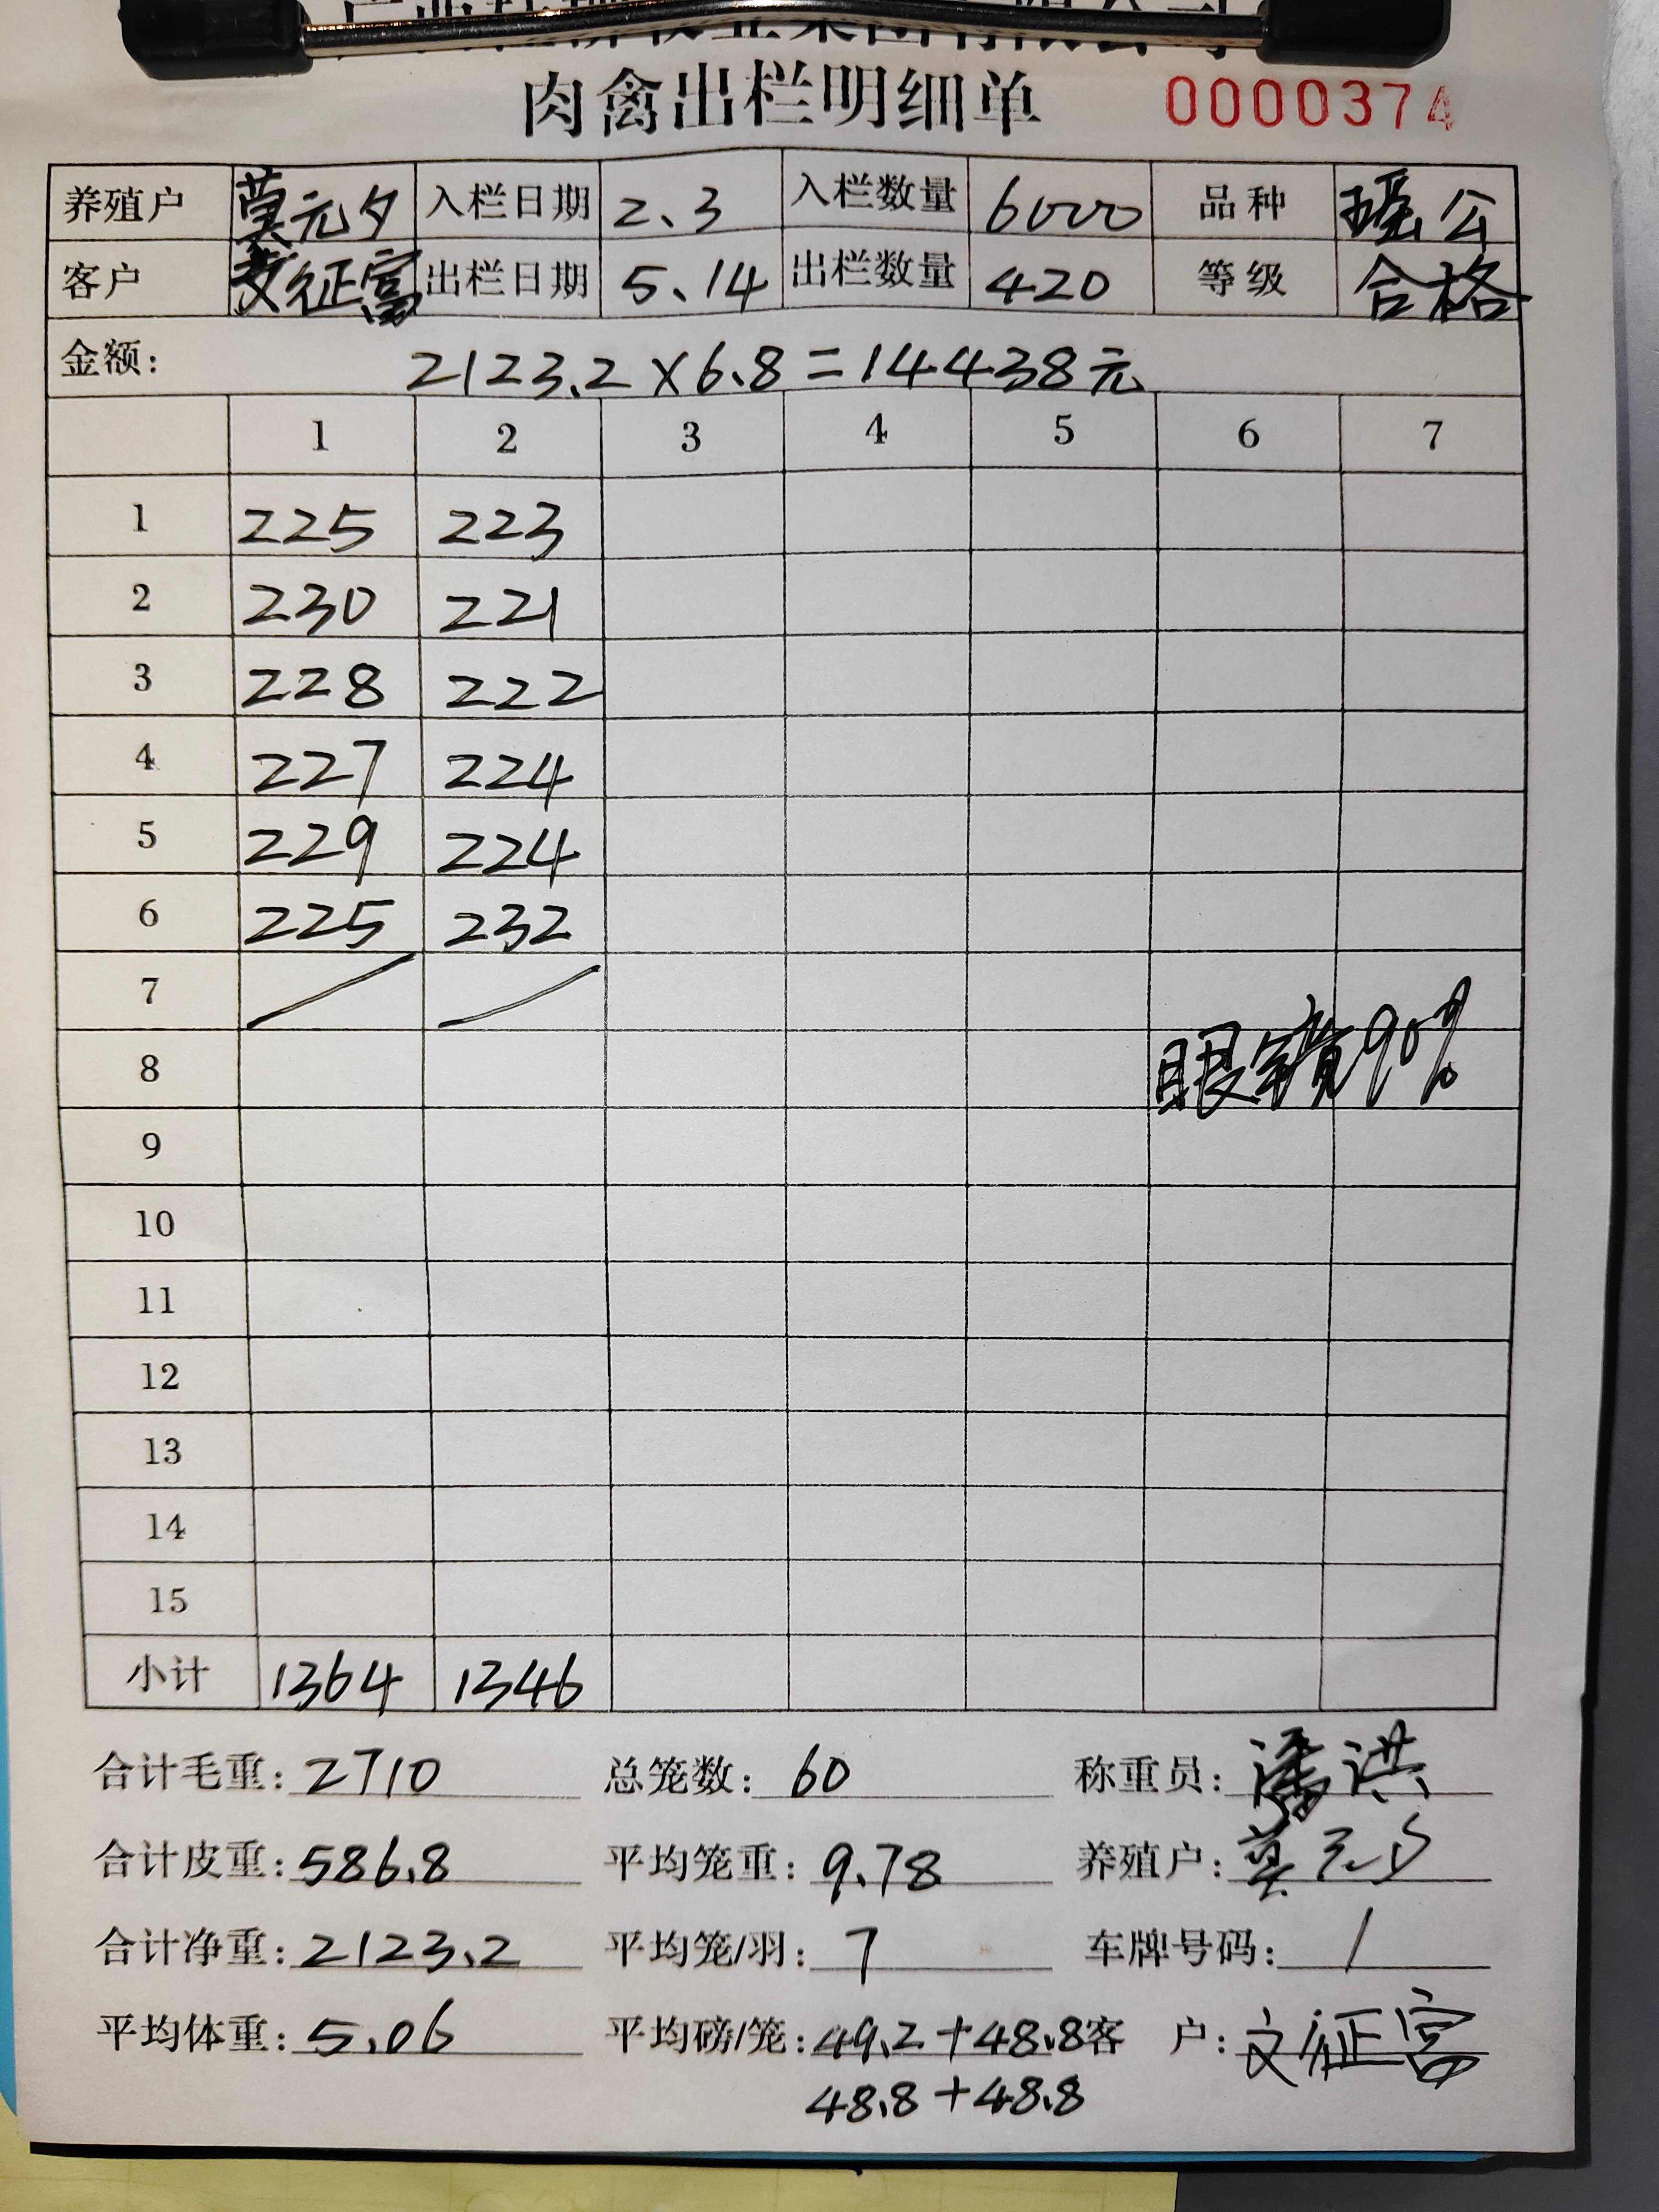 肉禽出栏明细单 0000374
养殖户 莫元夕 入栏日期 2.3 入栏数量 6000 品种 瑶公
客户 文征富 出栏日期 5.14 出栏数量 420 等级 合格
金额: 2123.2×6.8=14438元
1 2 3 4 5 6 7
1 225 223
2 230 221
3 228 222
4 227 224
5 229 224
6 225 232
7
8 眼 90%
9
10
11
12
13
14
15
小计 1364 1346
合计毛重: 2710 总笼数: 60 称重员: 潘洪
合计皮重: 586.8 平均笼重: 9.78 养殖户: 莫元夕
合计净重: 2123.2 平均笼/羽: 7 车牌号码: /
平均体重: 5.06 平均磅/笼: 49.2+48.8 客户: 文征富
48.8+48.8